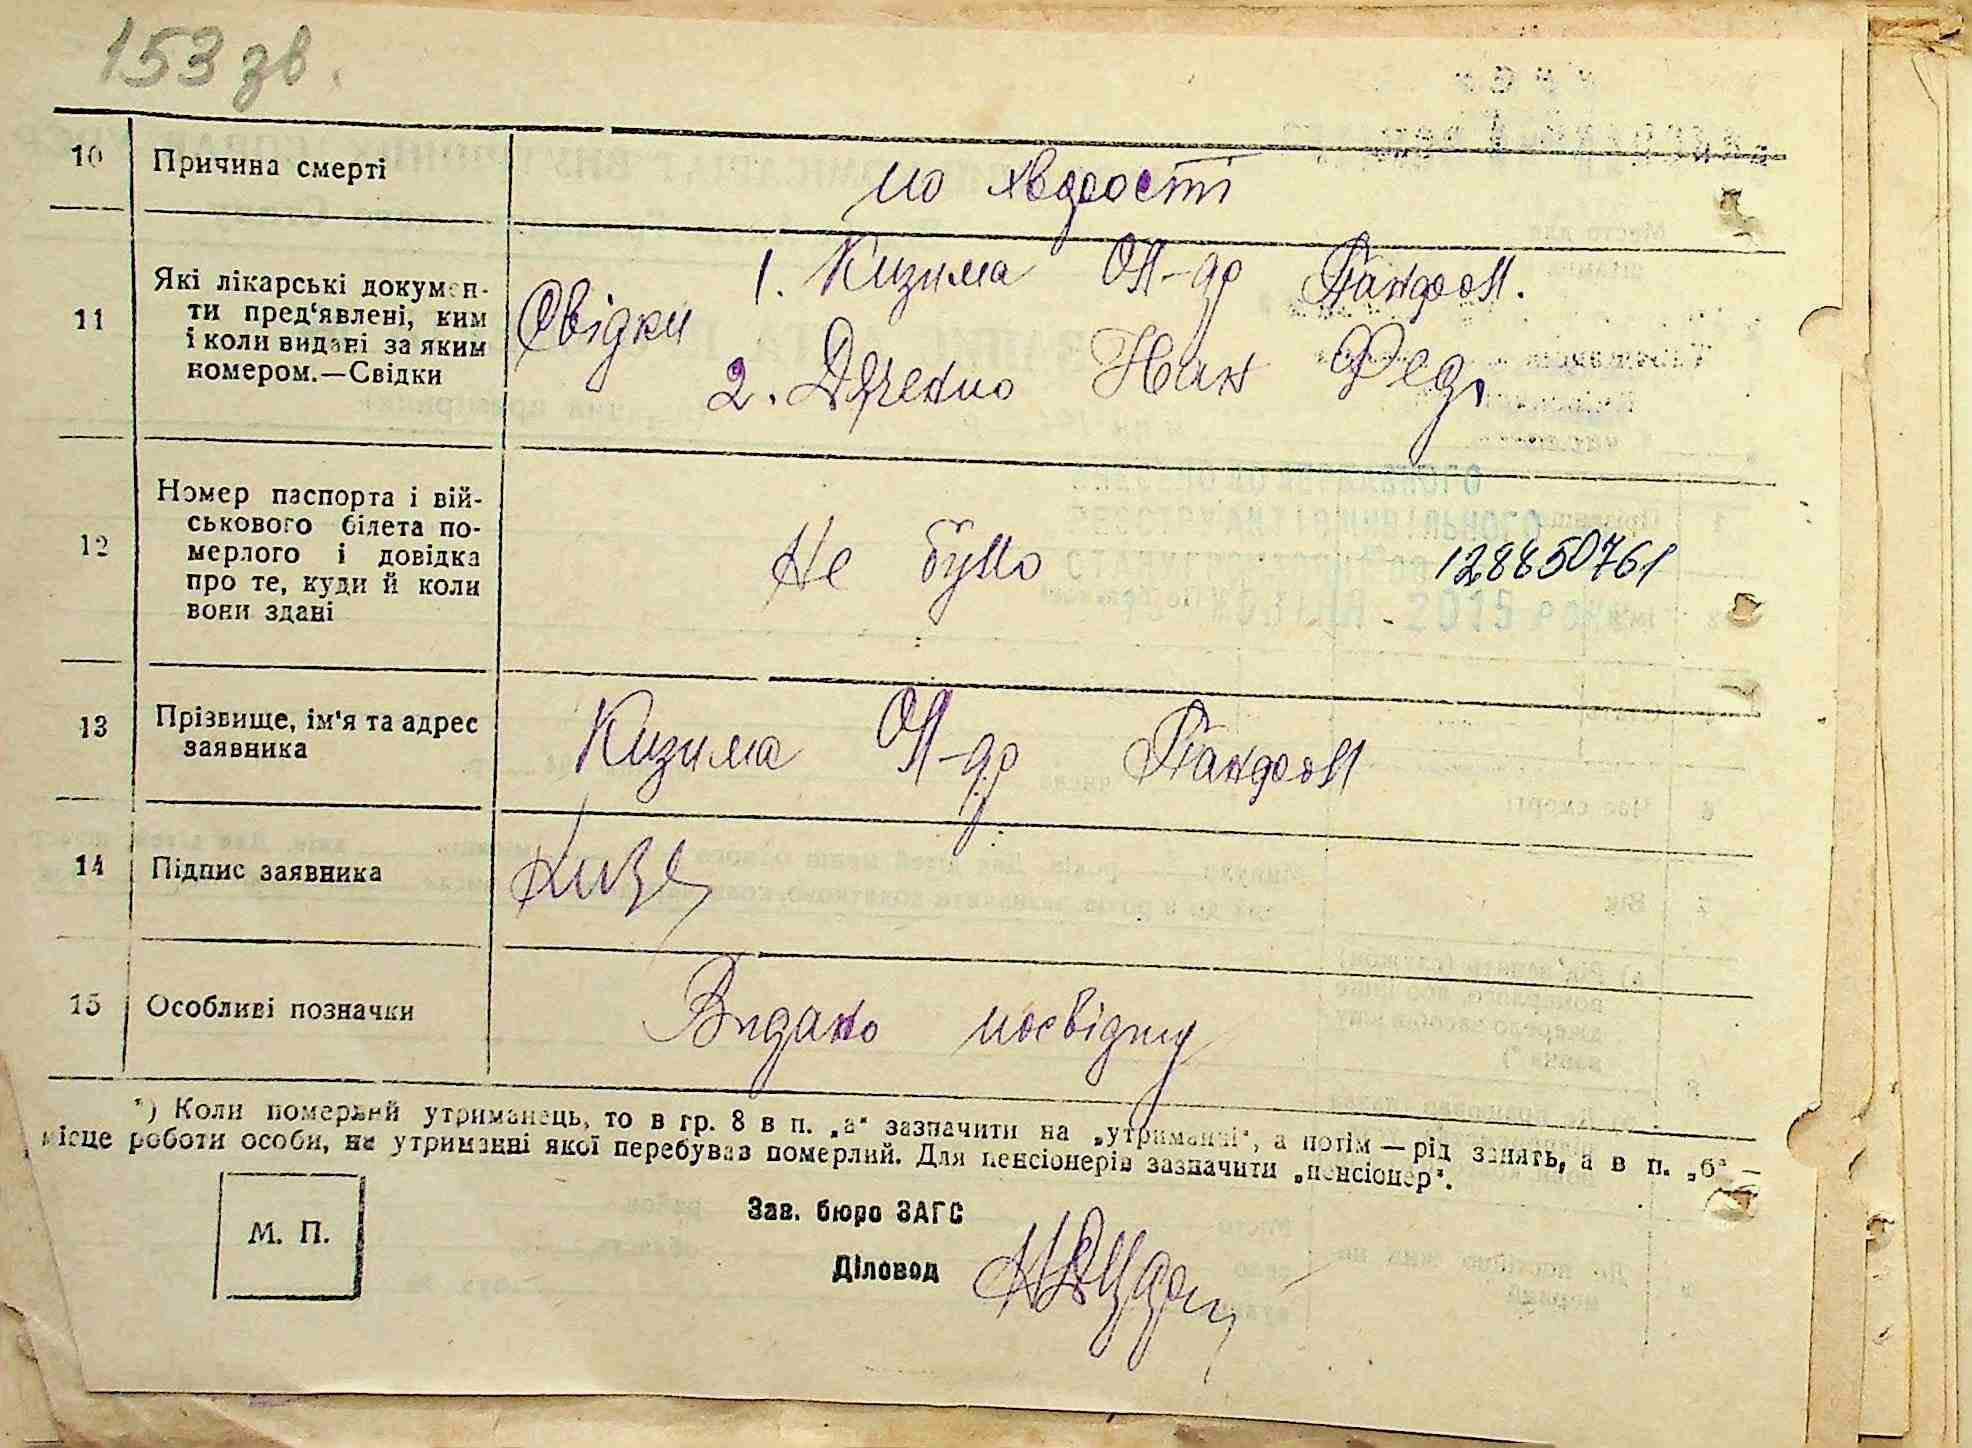 153 зв.
10 Причина смерті по хворості
11 Які лікарські докумен-
ти пред‘явлені, ким
і коли видані за яким
номером.—Свідки
Свідки 1. Кизима Ол-др
2. Ник Фед.
12 Номер паспорта і вій-
ськового білета по-
мерлого і довідка
про те, куди й коли
вони здані
Не було 128850761
13 Прізвище, ім'я та адрес
заявника
Кизима Ол-др
14 Підпис заявника
15 Особливі позначки Видано посвідку
*) Коли померлий утриманець, то в гр. 8 в п. „а“ зазначити на „утриманні“, а потім — рід занять, а в п. „б“ —
місце роботи особи, на утриманні якої перебував померлий. Для пенсіонерів зазначити „пенсіонер“.
М. П.
Зав. бюро ЗАГС
Діловод